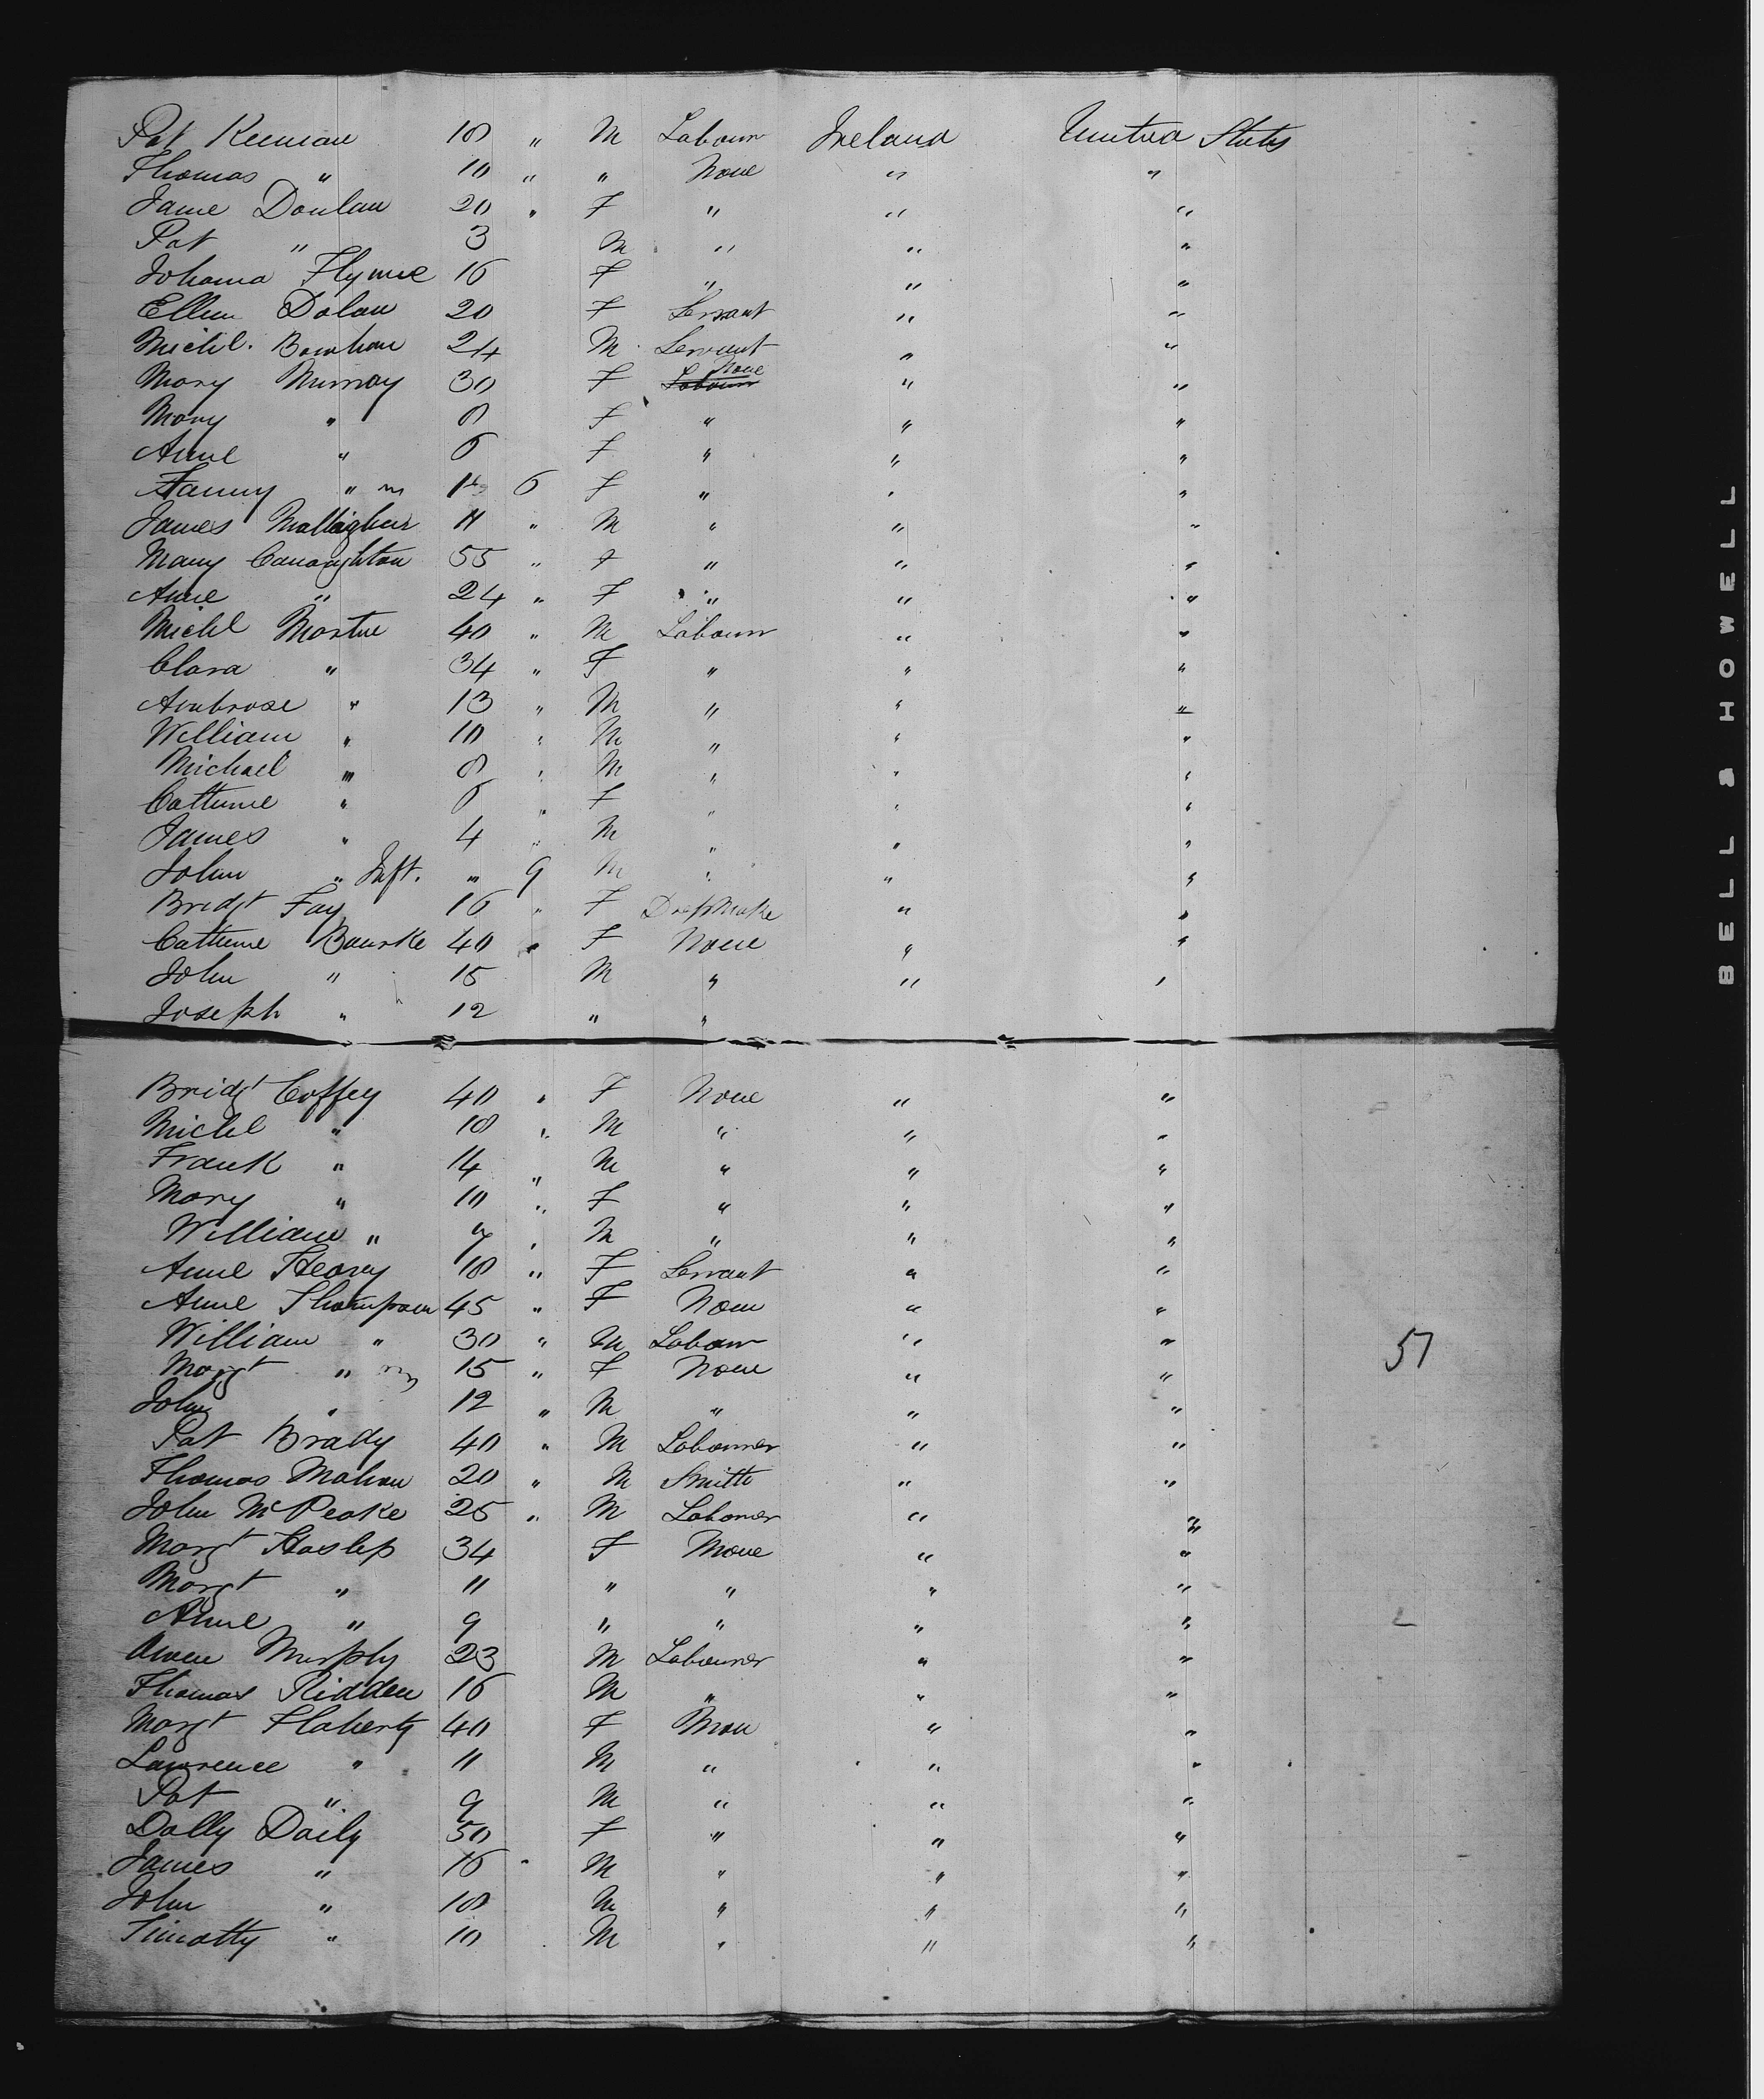 Pat Keenan 18 " M Labour Ireland United States
Thomas " 10 " " None " "
Jane Donlan 20 " F " " "
Pat " 3 M " " "
Johanna Flynne 16 F " " "
Ellen Dolan 20 F Servant " "
Michl. 24 M Servant " "
Mary Murray 30 F Labour None " "
Mary " 8 F " " "
Anne " 6 F " " "
Fanny " 6 F " " "
James 11 " M " " "
Mary Canaughton 55 " F " " "
Anne " 24 " F " " "
Michl 40 " M Labour " "
Clara " 34 " F " " "
Ambrose " 13 " M " " "
William " 10 " M " " "
Michael " 8 " M " " "
Catherine " 6 " F " " "
James " 4 " M " " "
John " Inft. " 9 M " " "
Bridgt Fay 16 " F DressMake " "
Catherine Bourke 40 " F None " "
John " 15 M " " "
Joseph " 12 " "
Bridgt Coffey 40 " F None " "
Michl " 18 " M " " "
Frank " 14 " M " " "
Mary " 10 " F " " "
William " 7 " M " " "
Anne Heavy 18 " F Servant " "
Anne Thompson 45 " F None " "
William " 30 " M Labour " "
51
Margt " 15 " F None " "
John " 12 " M " " "
Pat Brady 40 " M Labourer " "
Thomas Mahon 20 " M Smith " "
John McPeake 25 " M Labourer " "
Margt Haslep 34 F None " "
Margt " 11 " " " "
Anne " 9 " " " "
Owen Murphy 23 M Labourer " "
Thomas Ridden 16 M " " "
Margt Flaherty 40 F None " "
Lawrence " 11 M " " "
Pat " 9 M " " "
Dolly Daily 50 F " " "
James " 16 " M " " "
John " 18 M " " "
Timothy " 10 M " " "
BELL & HOWELL